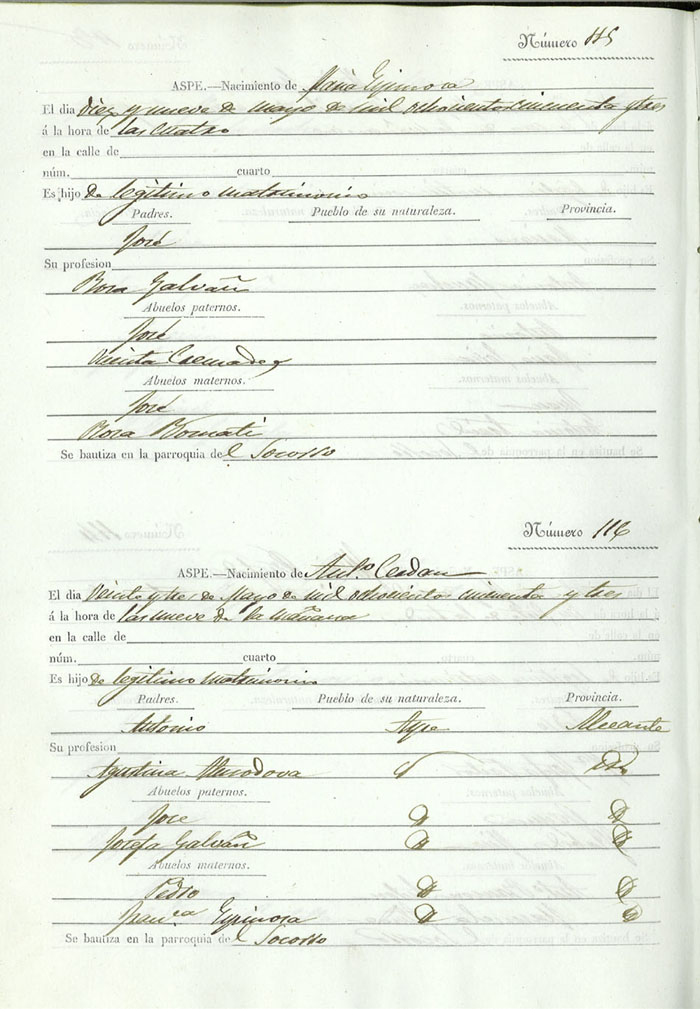 Número 115
ASPE.—Nacimiento de Maria Espinosa
El dia Diez y nueve de mayo de mil ochocientos cincuenta y tres
á la hora de las cuatro
en la calle de
núm. cuarto
Es hijo de legitimo matrimonio
Padres. Pueblo de su naturaleza. Provincia.
José
Su profesion
Rosa Galvañ
Abuelos paternos.
José
Vicenta
Abuelos maternos.
José
Rosa
Se bautiza en la parroquia de el Socorro
Número 116
ASPE.—Nacimiento de Ant.º Cerdan
El dia Veinte y tres de Mayo de mil ochocientos cincuenta y tres
á la hora de las nueve de la mañana
en la calle de
núm. cuarto
Es hijo de legitimo matrimonio
Padres. Pueblo de su naturaleza. Provincia.
Antonio Aspe Alicante
Su profesion
Agustina Almodova
Abuelos paternos.
Jose D D
Josefa Galvañ D D
Abuelos maternos.
Pedro D D
Fran.ca Espinosa D D
Se bautiza en la parroquia de el Socorro